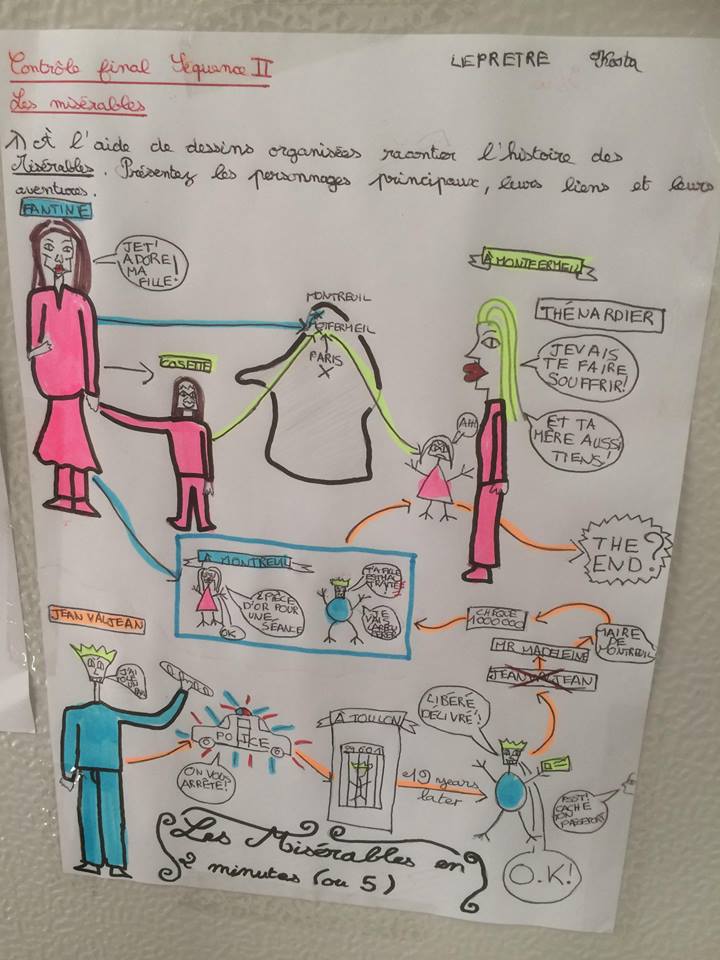 Contrôle final Séquence II
LEPRETRE
Les misérables
1) À l'aide de dessins organisées raconter l'histoire des
Misérables. Présentez les personnages principaux, leurs liens et leurs
aventures.
FANTINE
JET'
ADORE
MA
FILLE!
COSETTE
MONTREUIL
MONTFERMEIL
PARIS
X
À MONTFERMEIL
THÉNARDIER
JE VAIS
TE FAIRE
SOUFFRIR!
ET TA
MÈRE AUSSI
TIENS!
AH!
THE
END?
À MONTREUIL
2 PIÈCE
D'OR POUR
UNE
SÉANCE
OK
TA FILLE
EST MAL
TRAITÉ
JE
VAIS
CHÈQUE
1000000
MAIRE
DE
MONTREUIL
MR MADELEINE
JEAN VALJEAN
JEAN VALJEAN
J'AI
VOLÉ
UN
POLICE
ON VOUS
ARRÊTE!
À TOULON
24601
19 years
later
LIBÉRÉ
DÉLIVRÉ!
PSST!
CACHE
TON
PASSEPORT
O.K!
Les Misérables en
2 minutes (ou 5)